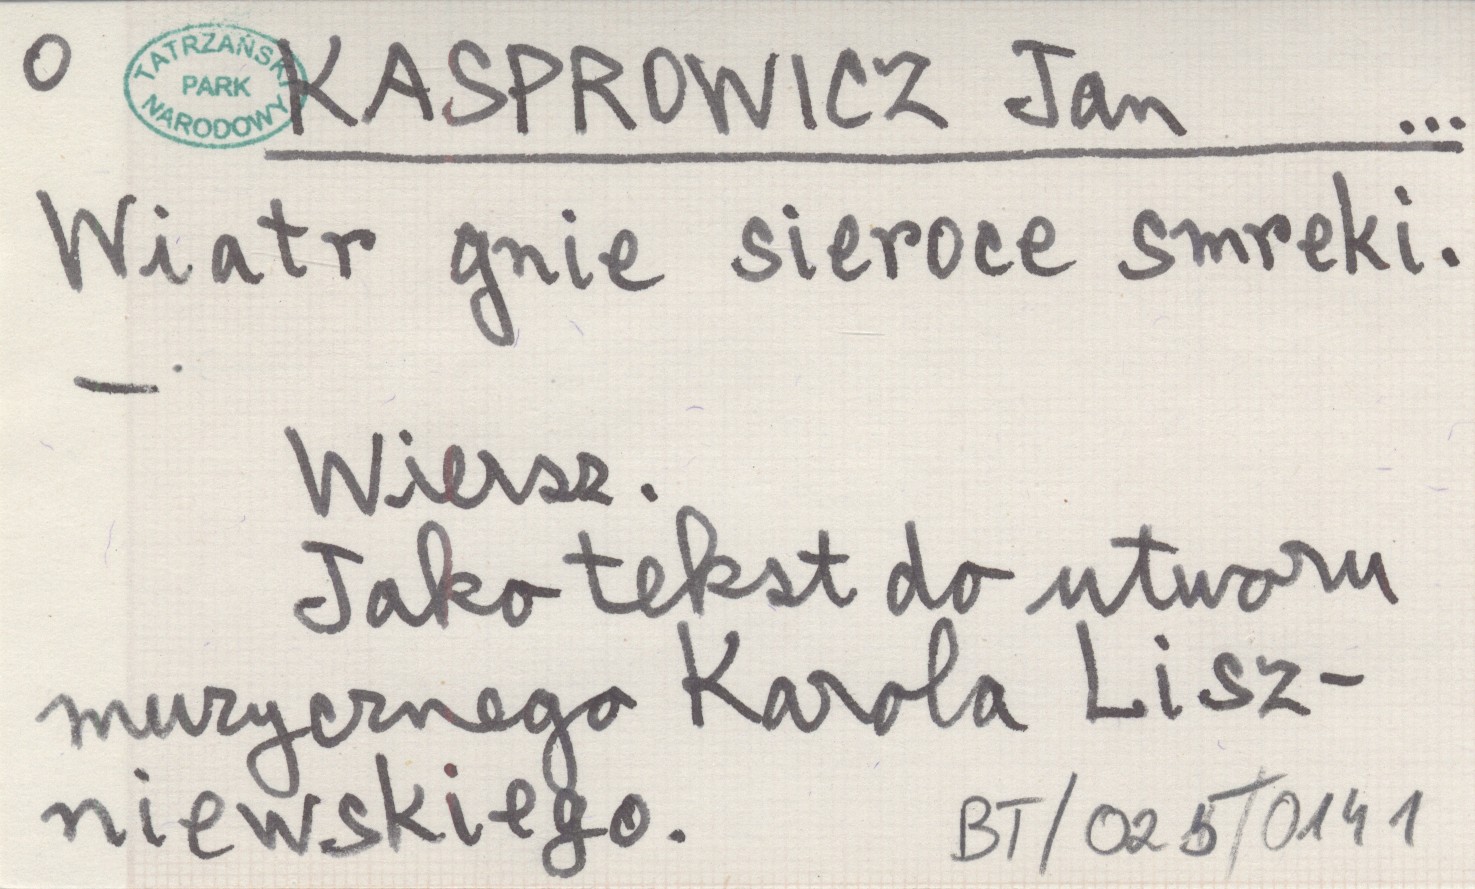 O TATRZAŃSKI PARK NARODOWY KASPROWICZ Jan ...
Wiatr gnie sieroce smreki.
—
Wiersz.
Jako tekst do utworu
muzycznego Karola Lisz-
niewskiego.
BT/025/0141